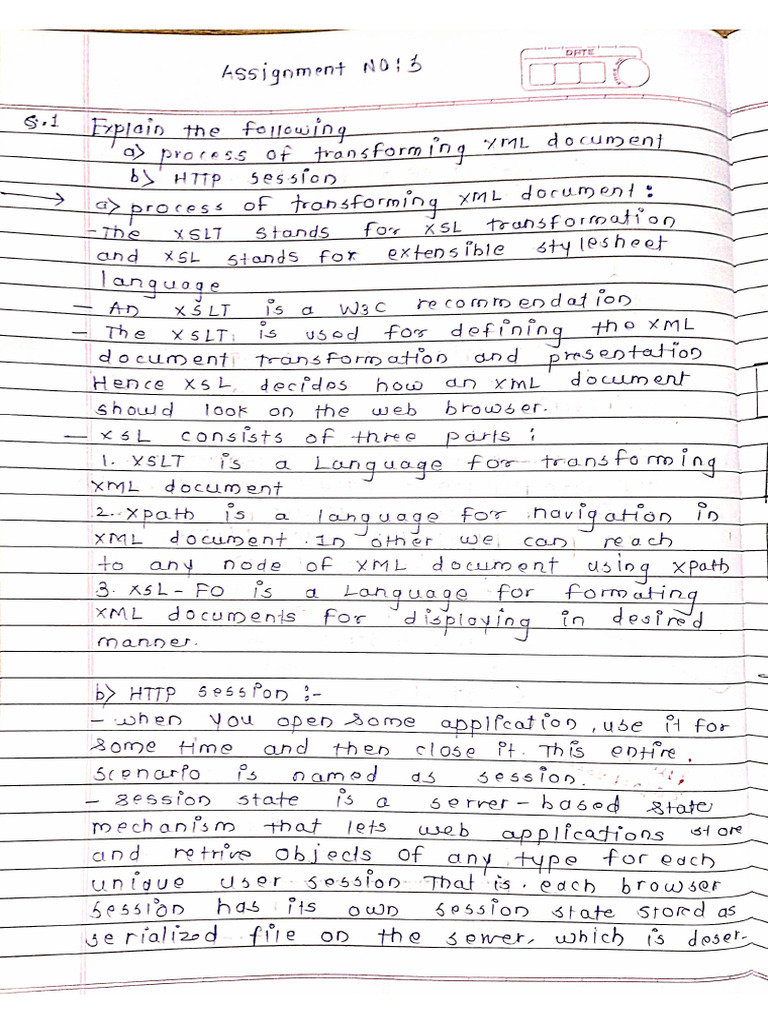 Assignment NO: 3
DATE
Q.1 Explain the following
a) process of transforming XML document
b) HTTP session
→ a) process of transforming XML document:
- The XSLT stands for XSL transformation
and XSL stands for extensible stylesheet
language
- An XSLT is a W3C recommendation
- The XSLT is used for defining the XML
document transformation and presentation
Hence XSL, decides how an XML document
should look on the web browser.
- XSL consists of three parts:
1. XSLT is a Language for transforming
XML document
2. Xpath is a language for navigation in
XML document. In other we can reach
to any node of XML document using xpath
3. XSL-FO is a Language for formating
XML documents for displaying in desired
manner.
b) HTTP session :-
- When you open some application, use it for
some time and then close it. This entire
scenario is named as session.
- Session state is a server-based state
mechanism that lets web applications store
and retrive objects of any type for each
unique user session That is, each browser
session has its own session state stored as
serialized file on the server, which is deser-